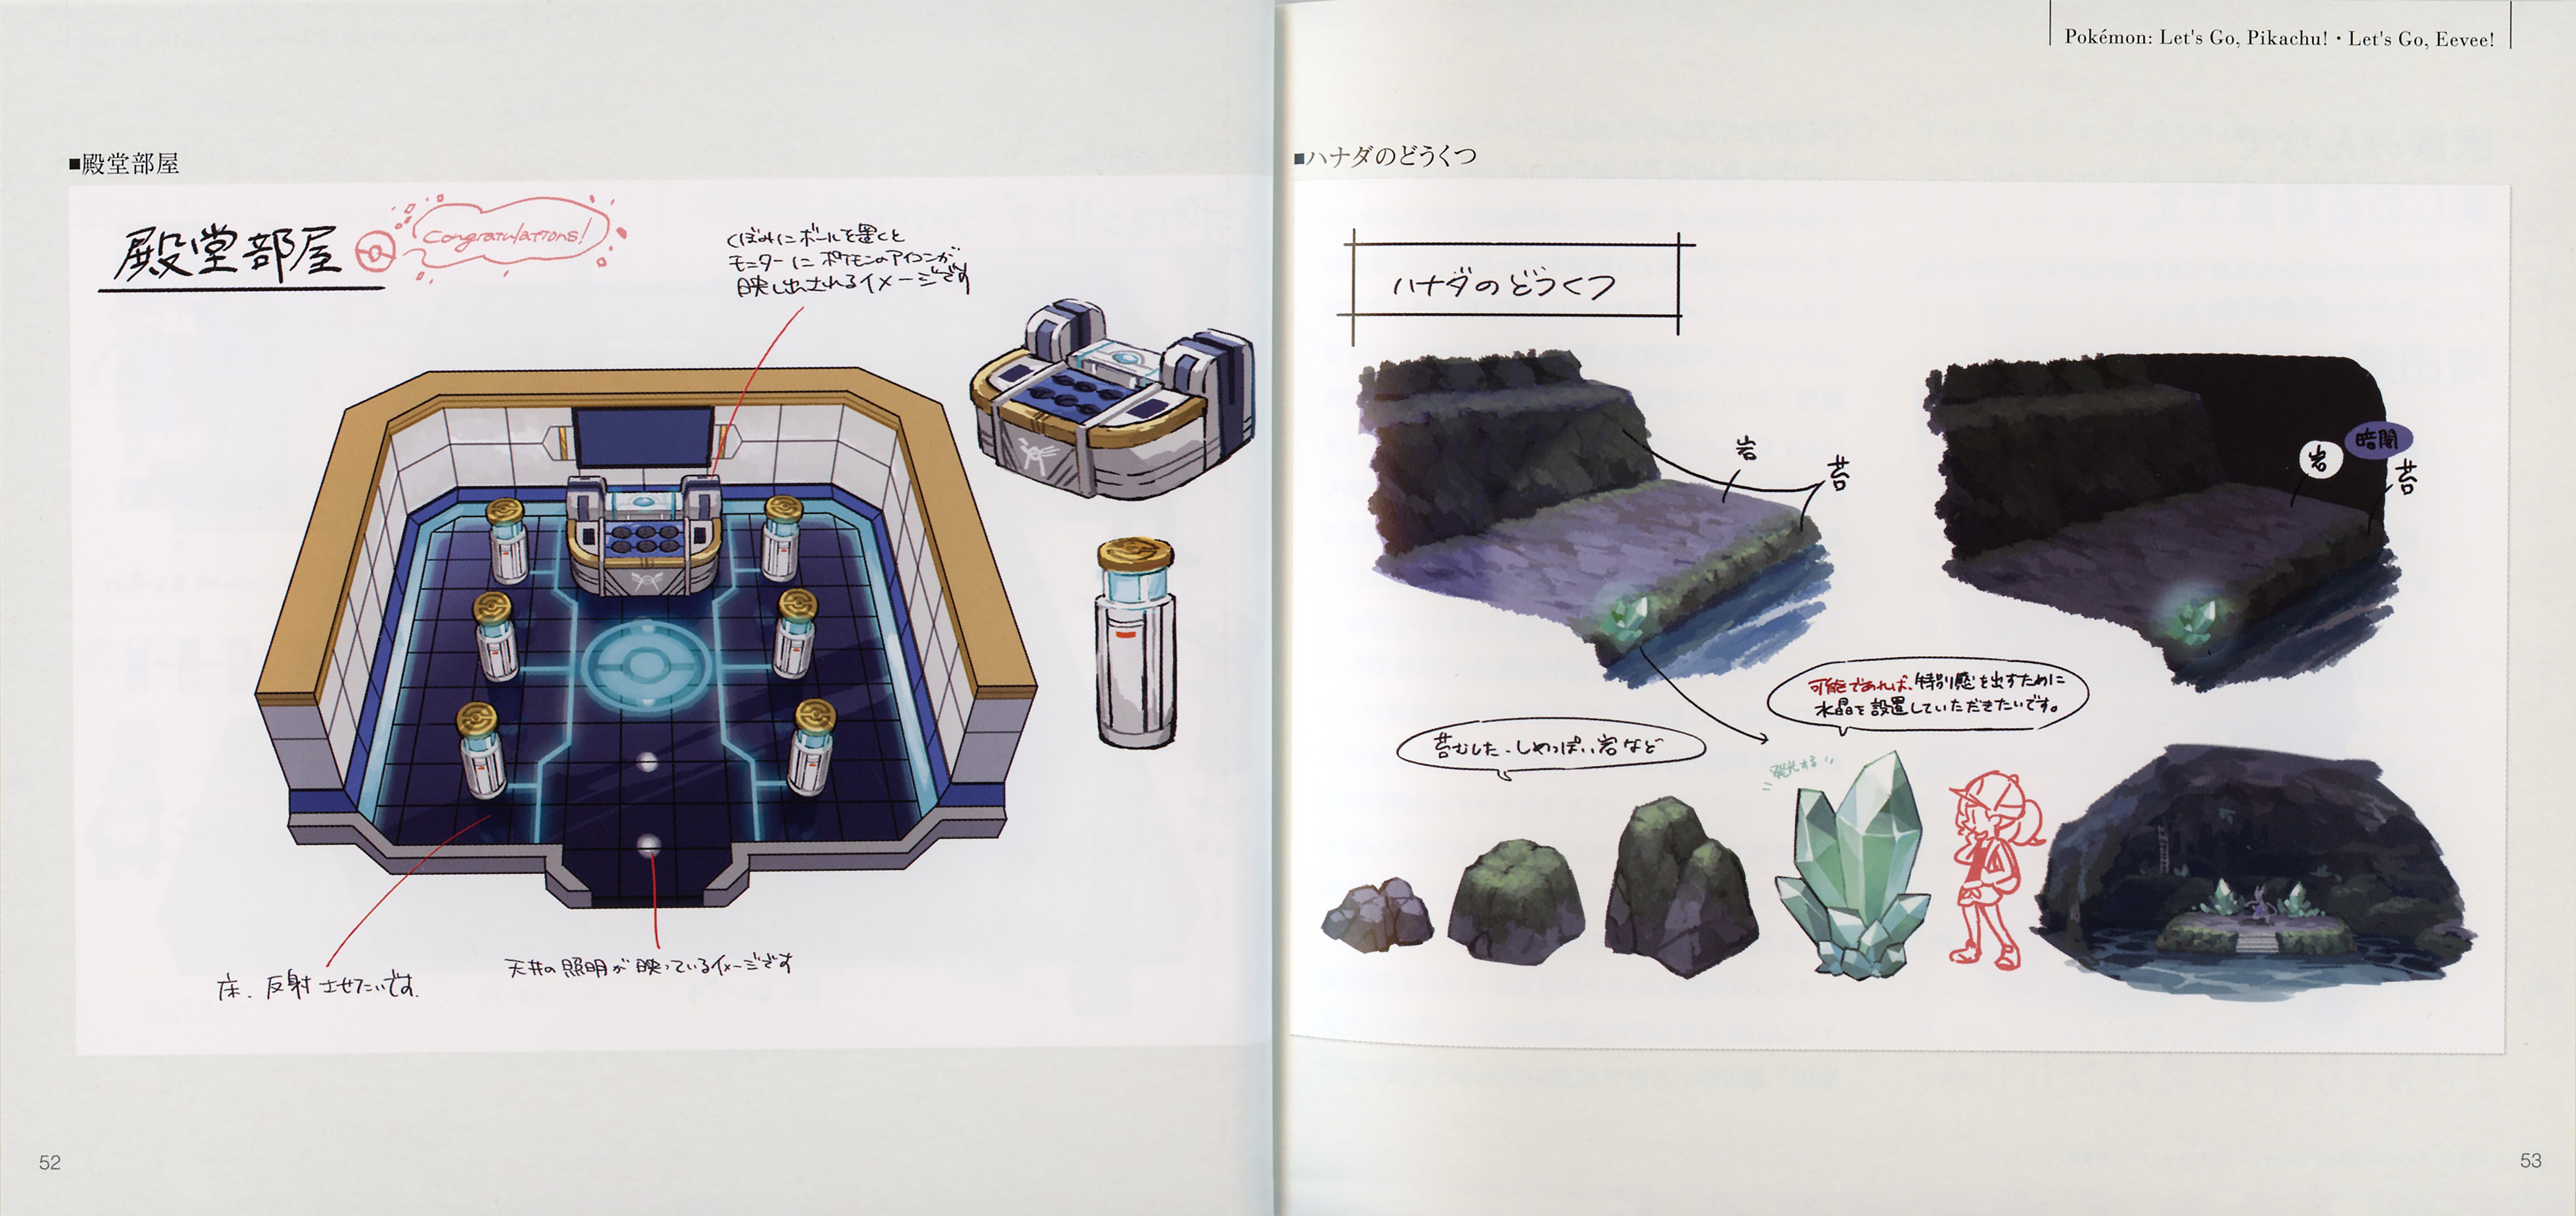 ■殿堂部屋
殿堂部屋
Congratulations!
くぼみにボールを置くと
モニターにポケモンのアイコンが
映し出されるイメージです
床、反射させたいです。
天井の照明が映っているイメージです
52
Pokémon: Let's Go, Pikachu!・Let's Go, Eevee!
■ハナダのどうくつ
ハナダのどうくつ
岩
苔
岩
暗闇
苔
可能であれば、特別感を出すために
水晶を設置していただきたいです。
苔むした、しめっぽい岩など
発光する
53